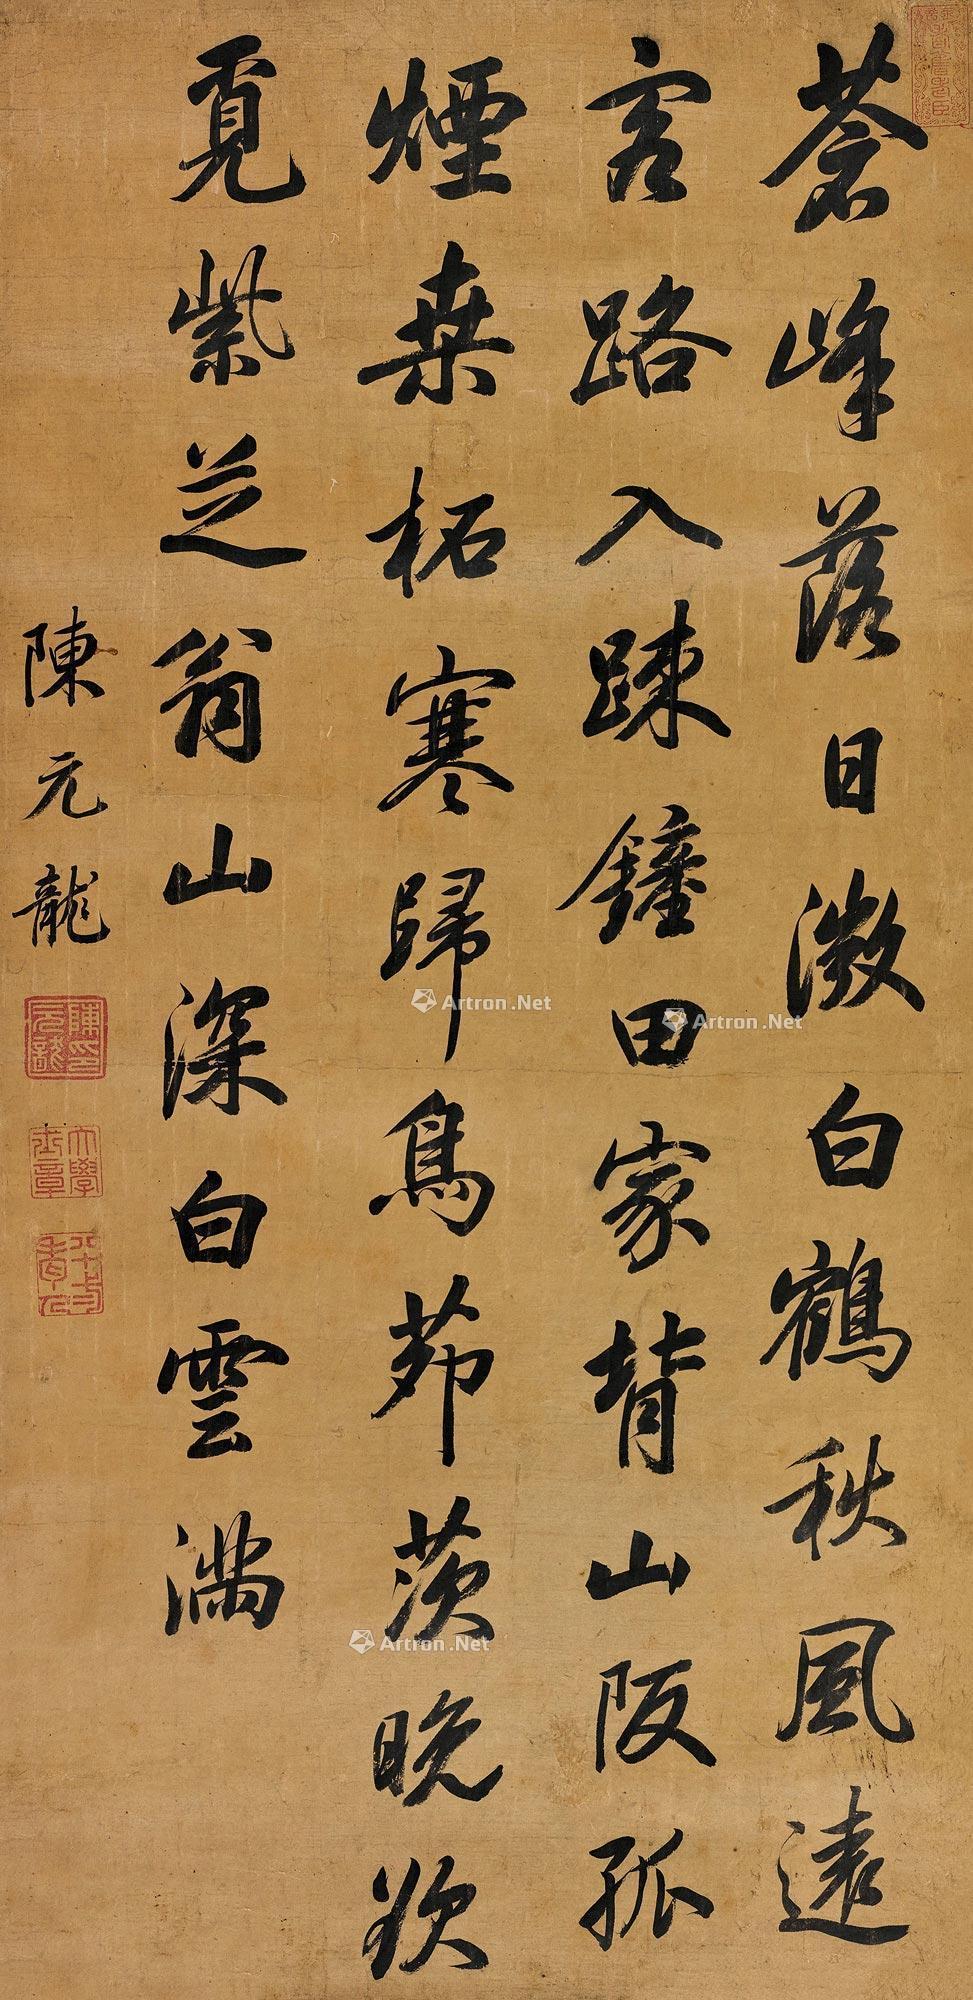 蒼峰落日澂白鶴秋風遠
客路入踈鐘田家背山阪孤
煙桒柘寒歸鳥茆茨晚欲
覓紫芝翁山深白雲滿
陳元龍
陳元龍印
大學士章
Artron.Net
Artron.Net
Artron.Net